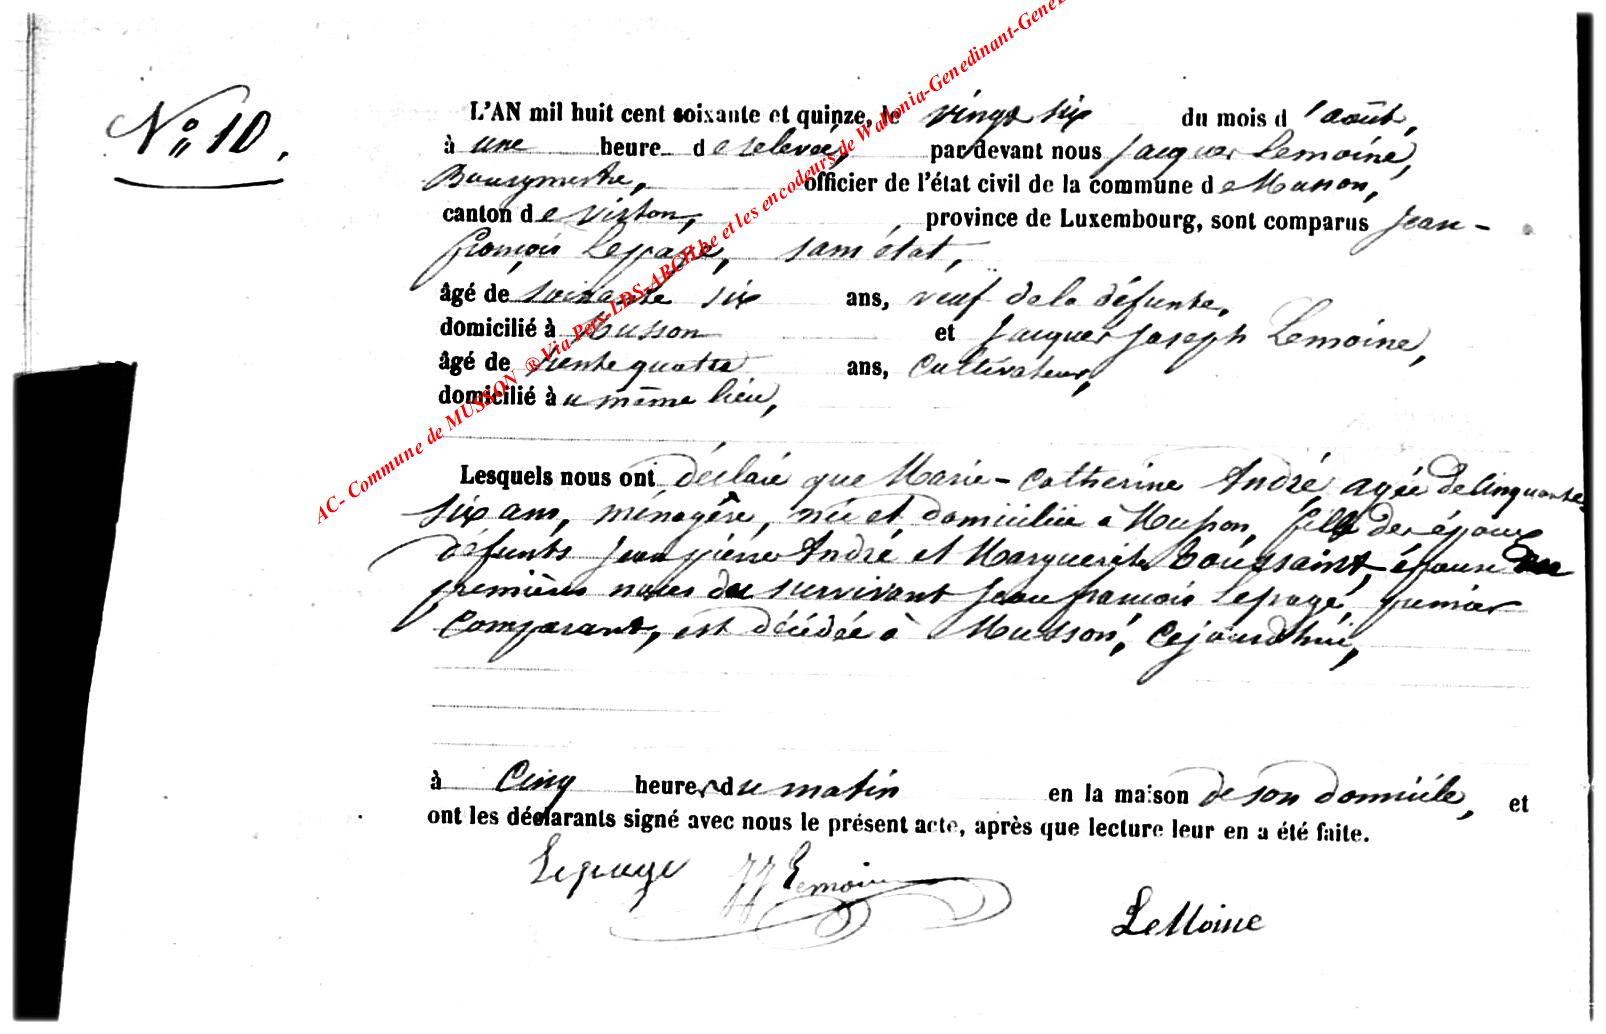 N° 10.
L'AN mil huit cent soixante et quinze, le vingt six du mois d'août,
à une heure de relevée, par devant nous Jacques Lemoine,
Bourgmestre, officier de l'état civil de la commune de Musson,
canton de Virton, province de Luxembourg, sont comparus Jean-
françois Lepage, sans état,
âgé de soixante six ans, veuf de la défunte,
domicilié à Musson et Jacques Joseph Lemoine,
âgé de trente quatre ans, Cultivateur,
domicilié au même lieu,
Lesquels nous ont déclaré que Marie-Catherine André, agée de Cinquante
six ans, ménagère, née et domiciliée à Musson, fille des époux
défunts Jean pierre André et Marguerite Toussaint, épouse en
premières noces du survivant Jean françois Lepage, premier
Comparant, est décédée à Musson, Cejourd'hui,
à Cinq heures du matin en la maison de son domicile, et
ont les déclarants signé avec nous le présent acte, après que lecture leur en a été faite.
Lepage JJ Lemoine
LeMoine
AC- Commune de MUSSON ® Via Pers-LDS-ARCH.be et les encodeurs de Wallonia-Genedinant-Gene